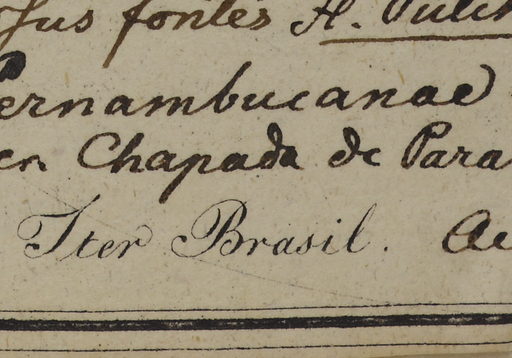 fontes H.
Pernambucanae
Chapada de Para
Iter Brasil.